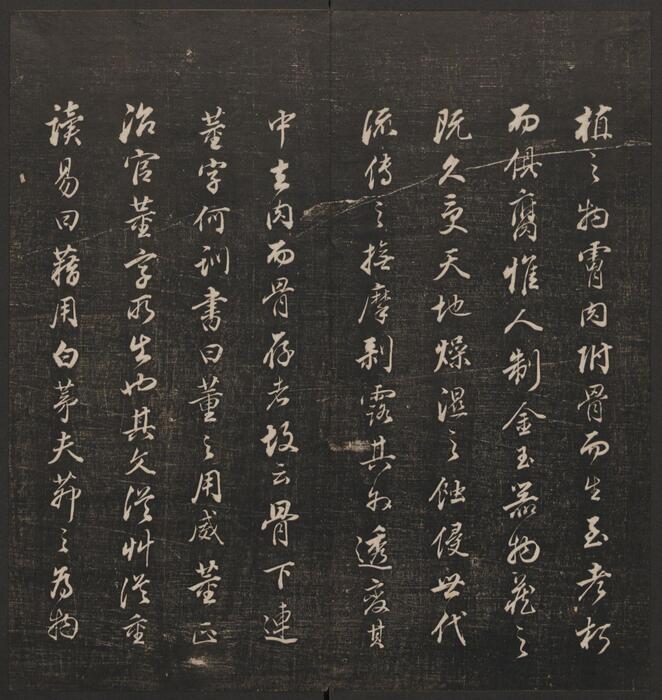 植之物霄肉附骨而生至老朽
而俱腐惟人制金玉器物藏之
既久更天地燥湿之蚀侵世代
流传之抚摩剥露其外透变其
中去肉而骨存者故云骨下连
董字何训书曰董之用威董正
治官董字所生也其文从艸从重
读易曰藉用白茅夫茆之为物